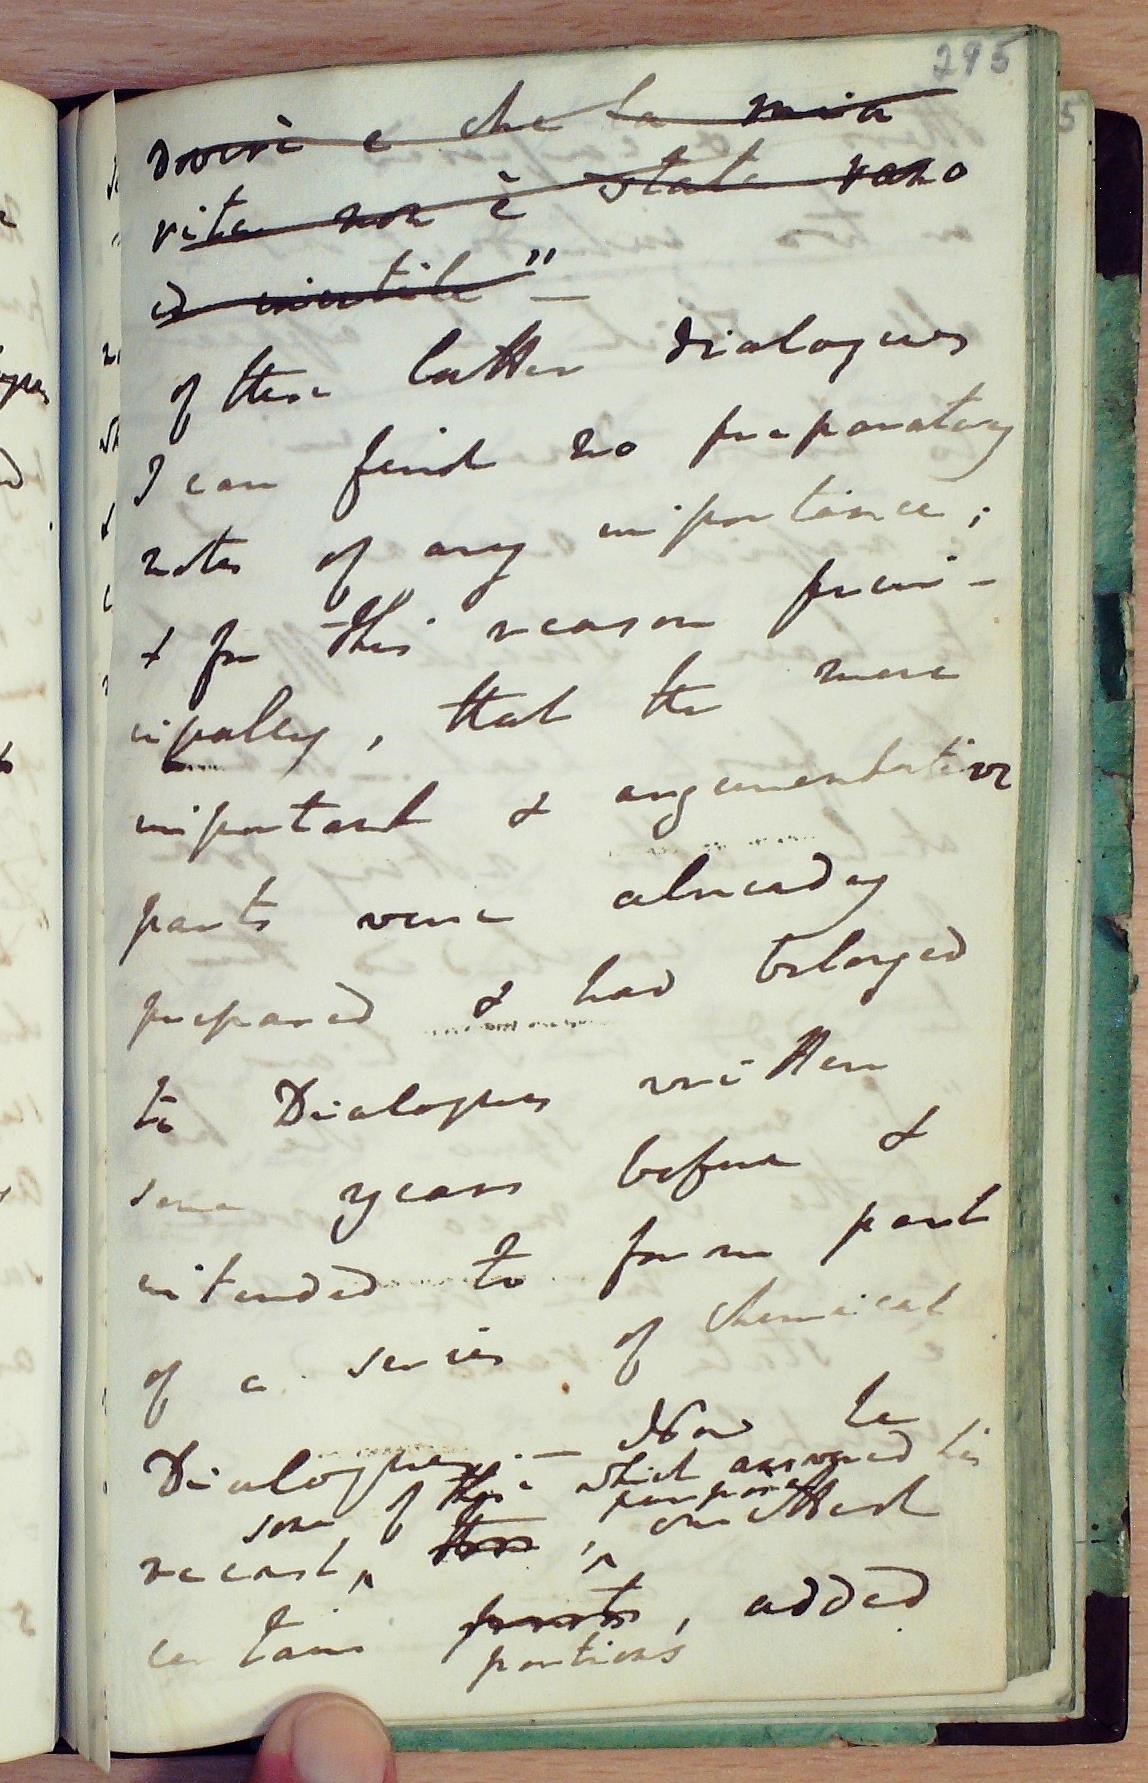 295
dovere è che la mia
vita non è stata vano
ed inutile" —
of these latter dialogues
I can find no preparatory
notes of any importance;
& for this reason prin-
cipally, that the more
important & argumentative
parts were already
prepared & had belonged
to Dialogues written
some years before &
intended to form part
of a series of Chemical
Dialogues. — Now he
some of these which answered his
purpose
recast, those, omitted
certain parts, added
portions